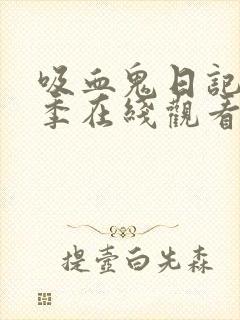 吸血鬼日記
季在綫觀看
提壺白先森